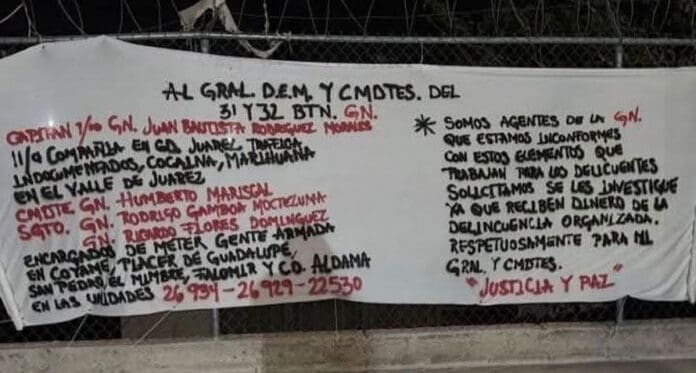 AL GRAL. D.E.M. Y CMDTES. DEL
31 Y 32 BTN. GN.
CAPITAN 1/00 GN. JUAN BAUTISTA RODRIGUEZ MORALES
11/a COMPAÑIA EN CD. JUAREZ, TRAFICA
INDOCUMENTADOS, COCAINA, MARIHUANA
EN EL VALLE DE JUAREZ
CMDTE. GN. HUMBERTO MARISCAL
SGTO. GN. RODRIGO GAMBOA MOCTEZUMA
GN. RICARDO FLORES DOMINGUEZ
ENCARGADOS DE METER GENTE ARMADA
EN COYAME, PLACER DE GUADALUPE,
SAN PEDRO, EL MIMBRE, FALOMIR Y CD. ALDAMA
EN LAS UNIDADES 26934-26929-22530
* SOMOS AGENTES DE LA GN.
QUE ESTAMOS INCONFORMES
CON ESTOS ELEMENTOS QUE
TRABAJAN PARA LOS DELICUENTES
SOLICITAMOS SE LES INVESTIGUE
YA QUE RECIBEN DINERO DE LA
DELINCUENCIA ORGANIZADA.
RESPETUOSAMENTE PARA MI
GRAL. Y CMDTES.
"JUSTICIA Y PAZ"